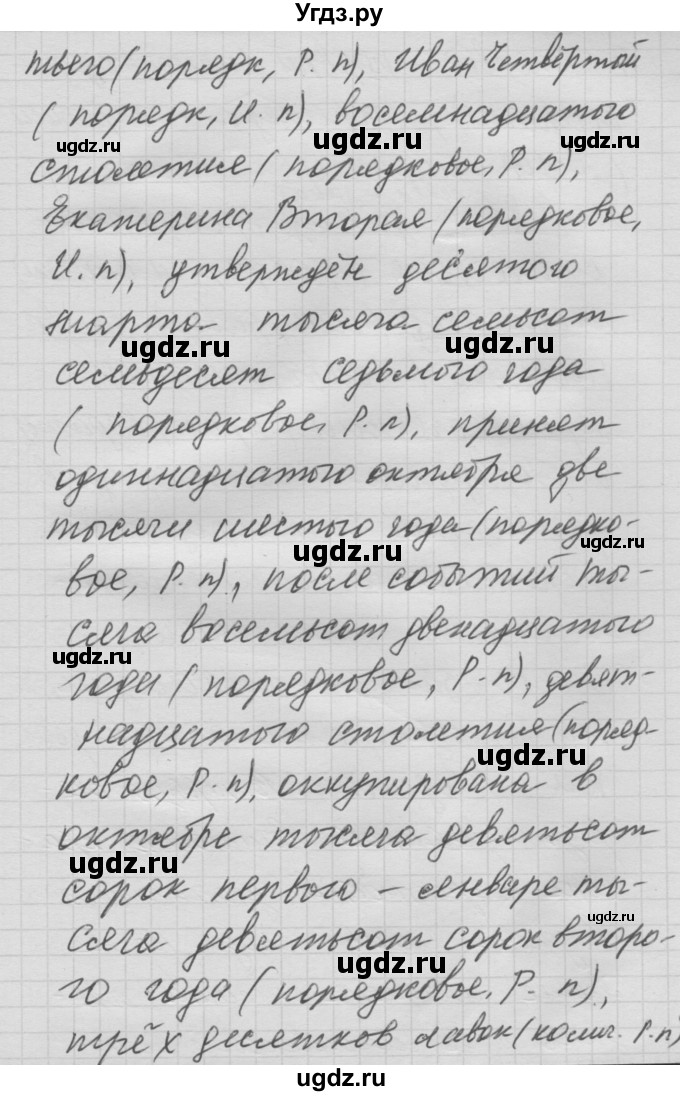 Угдз.ру
тьего (порядк, Р. п), Иван Четвёртой
( порядк, И. п), восемнадцатого
ugdz.ru ugdz.ru
столетия ( порядковое, Р. п),
ugdz.ru
Екатерина Вторая (порядковое,
И. п), утверждён десятого
марта тысяча семьсот
ugdz.ru ugdz.ru
семьдесят седьмого года
( порядковое, Р. п), принят
одиннадцатого октября две
тысячи шестого года (порядко-
ugdz.ru ugdz.ru
вое, Р. п), после событий ты-
сяча восемьсот двенадцатого
ugdz.ru
года ( порядковое, Р. п), девят-
надцатого столетия (поряд-
ugdz.ru
ковое, Р. п), оккупирована в
октябре тысяча девятьсот
ugdz.ru
сорок первого - январе ты-
ugdz.ru
сяча девятьсот сорок второ-
ugdz.ru
го года ( порядковое, Р. п),
трёх десятков лавок (колич. Р. п)
ugdz.ru